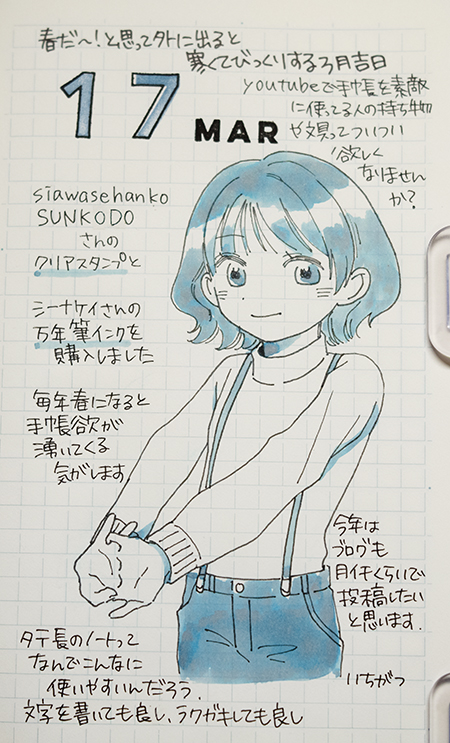 春だ〜!と思って外に出ると
寒くてびっくりする3月吉日
17
MAR
youtubeで手帳を素敵
に使ってる人の持ち物
や文具ってついつい
欲しく
なりません
か?
siawasehanko
SUNKODO
さんの
クリアスタンプと
シーナケイさんの
万年筆インクを
購入しました
毎年春になると
手帳欲が
湧いてくる
気がします
今年は
ブログも
月イチくらいで
投稿したい
と思います.
いちがつ
タテ長のノートって
なんでこんなに
使いやすいんだろう.
文字を書いても良し、ラクガキしても良し